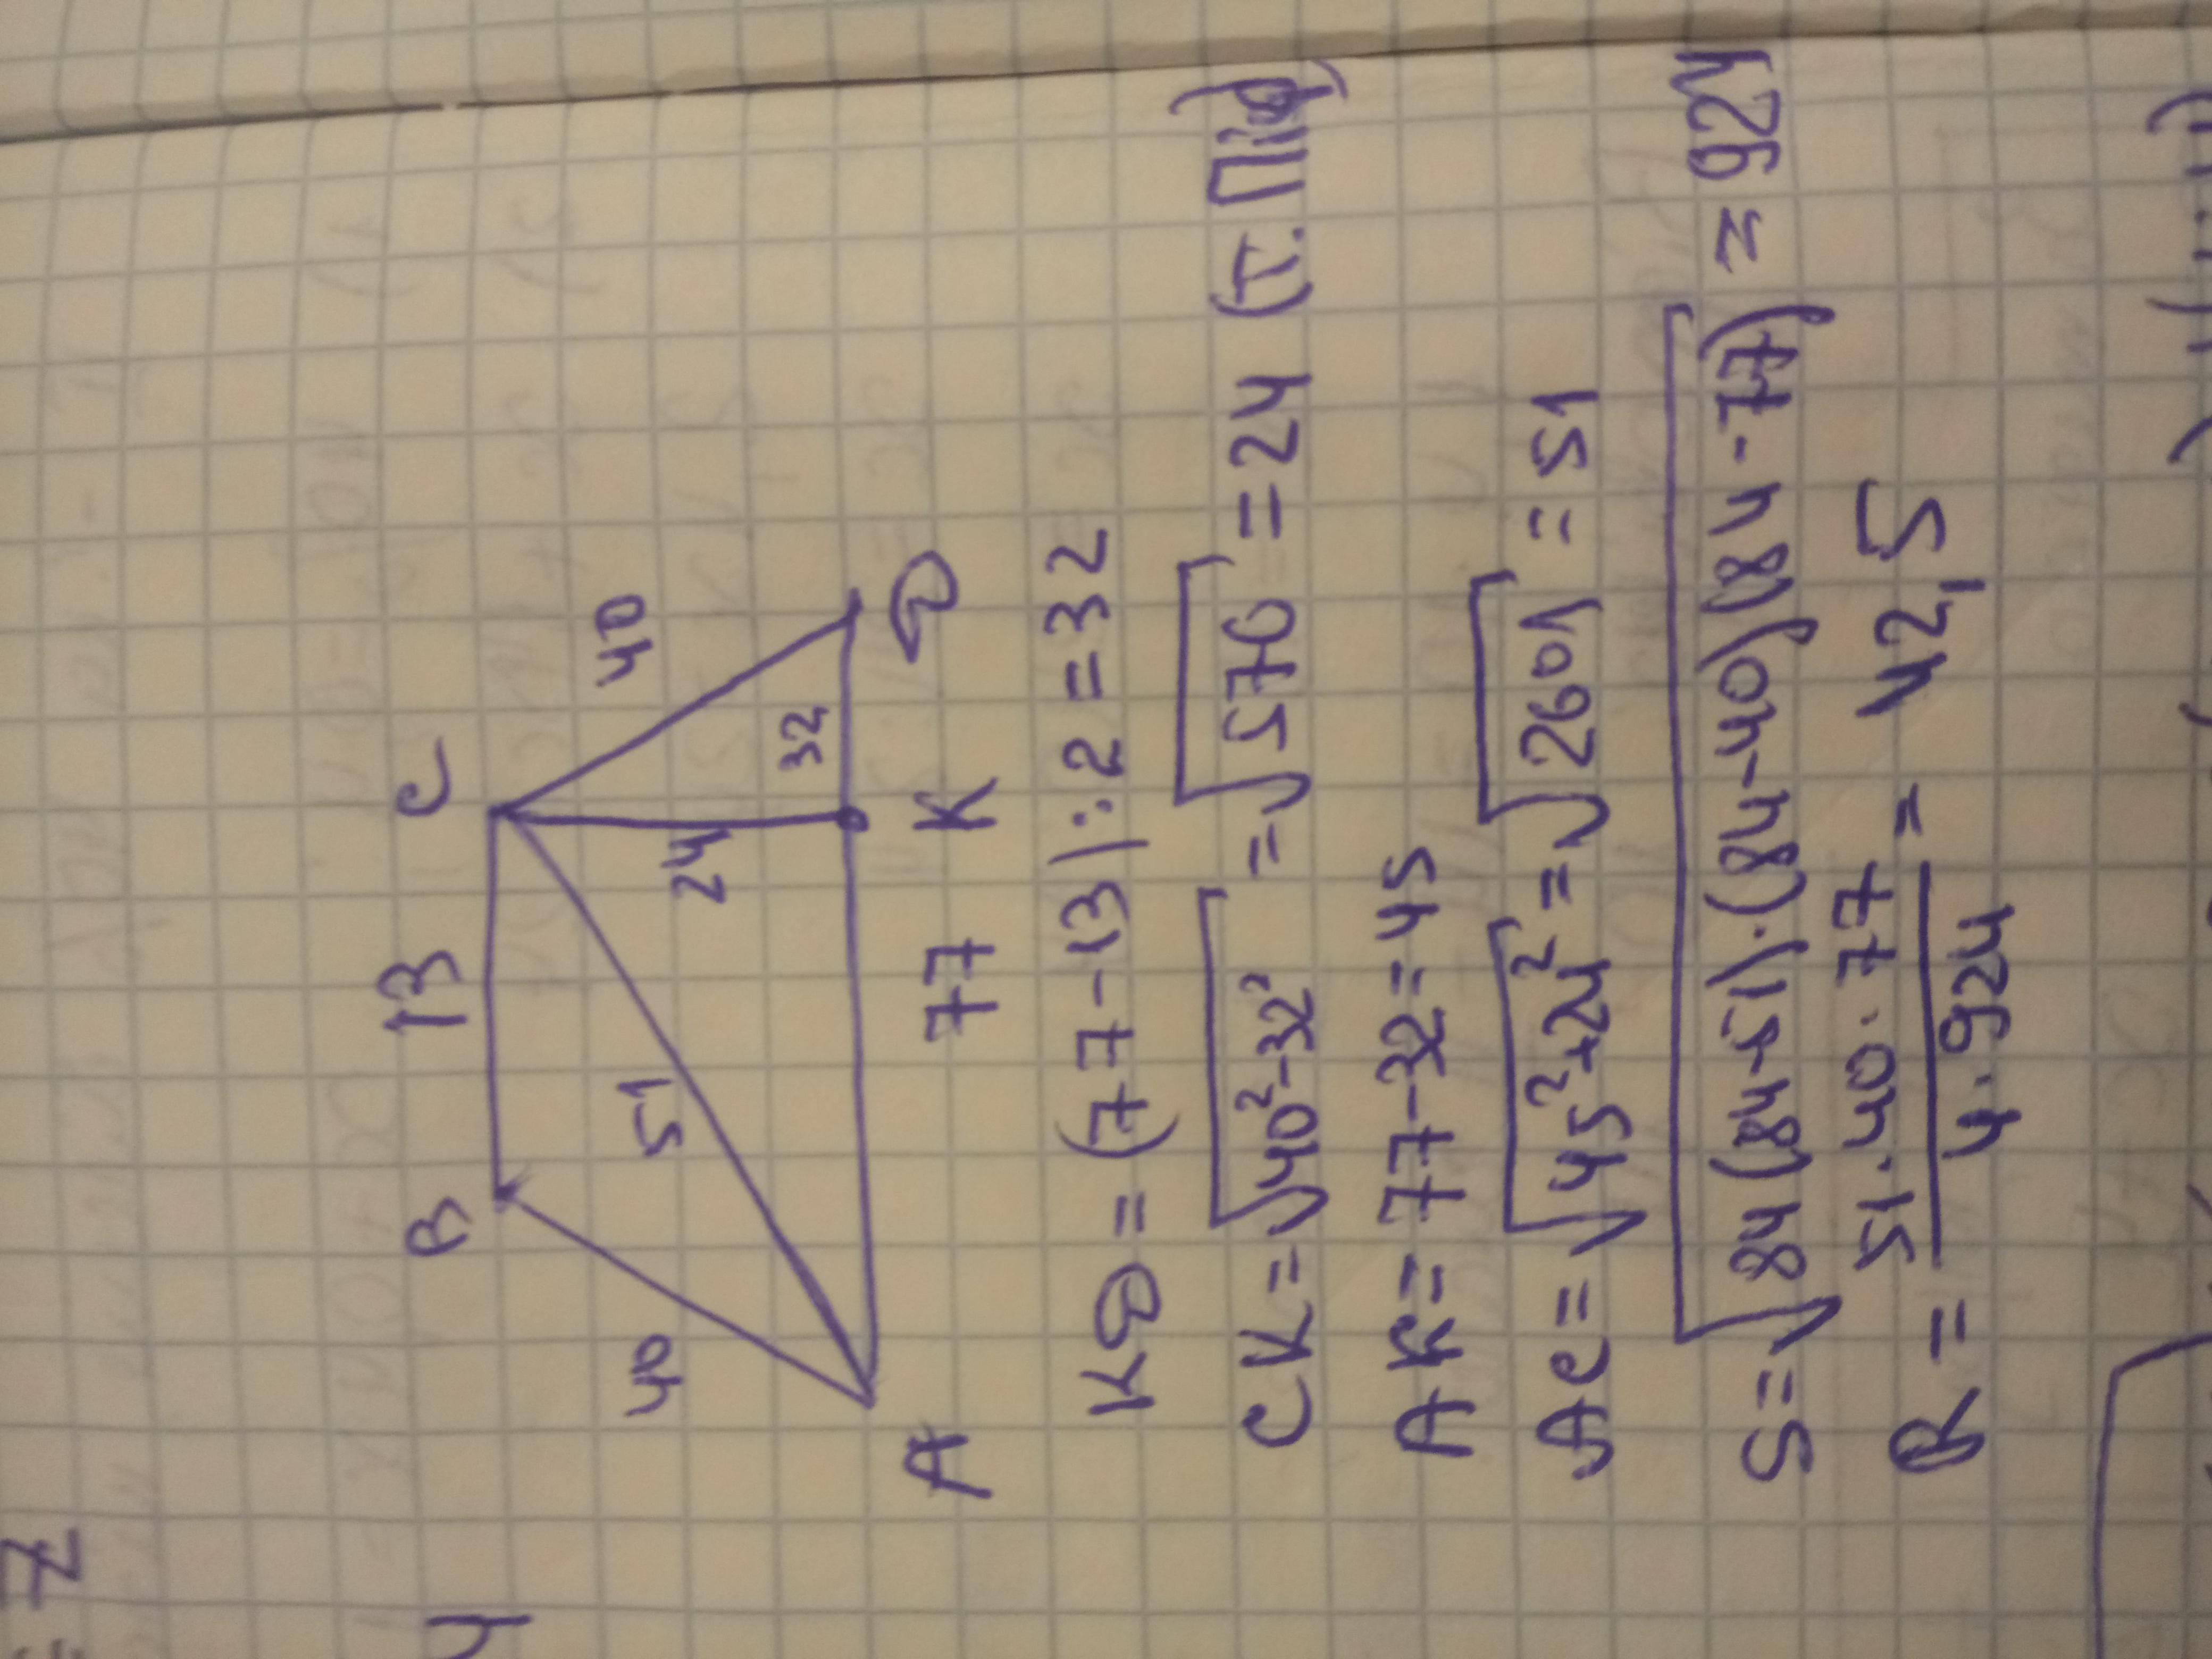 = 7
4
B 13 C
40 51 24 40
32
A 77 K D
KD = (77-13):2 = 32
CK = √40²-32² = √576 = 24 (т. Піф)
AK = 77-32 = 45
AC = √45²+24² = √2601 = 51
S = √84(84-51)·(84-40)(84-77) = 924
R = 51·40·77 / 4·924 = 42,5